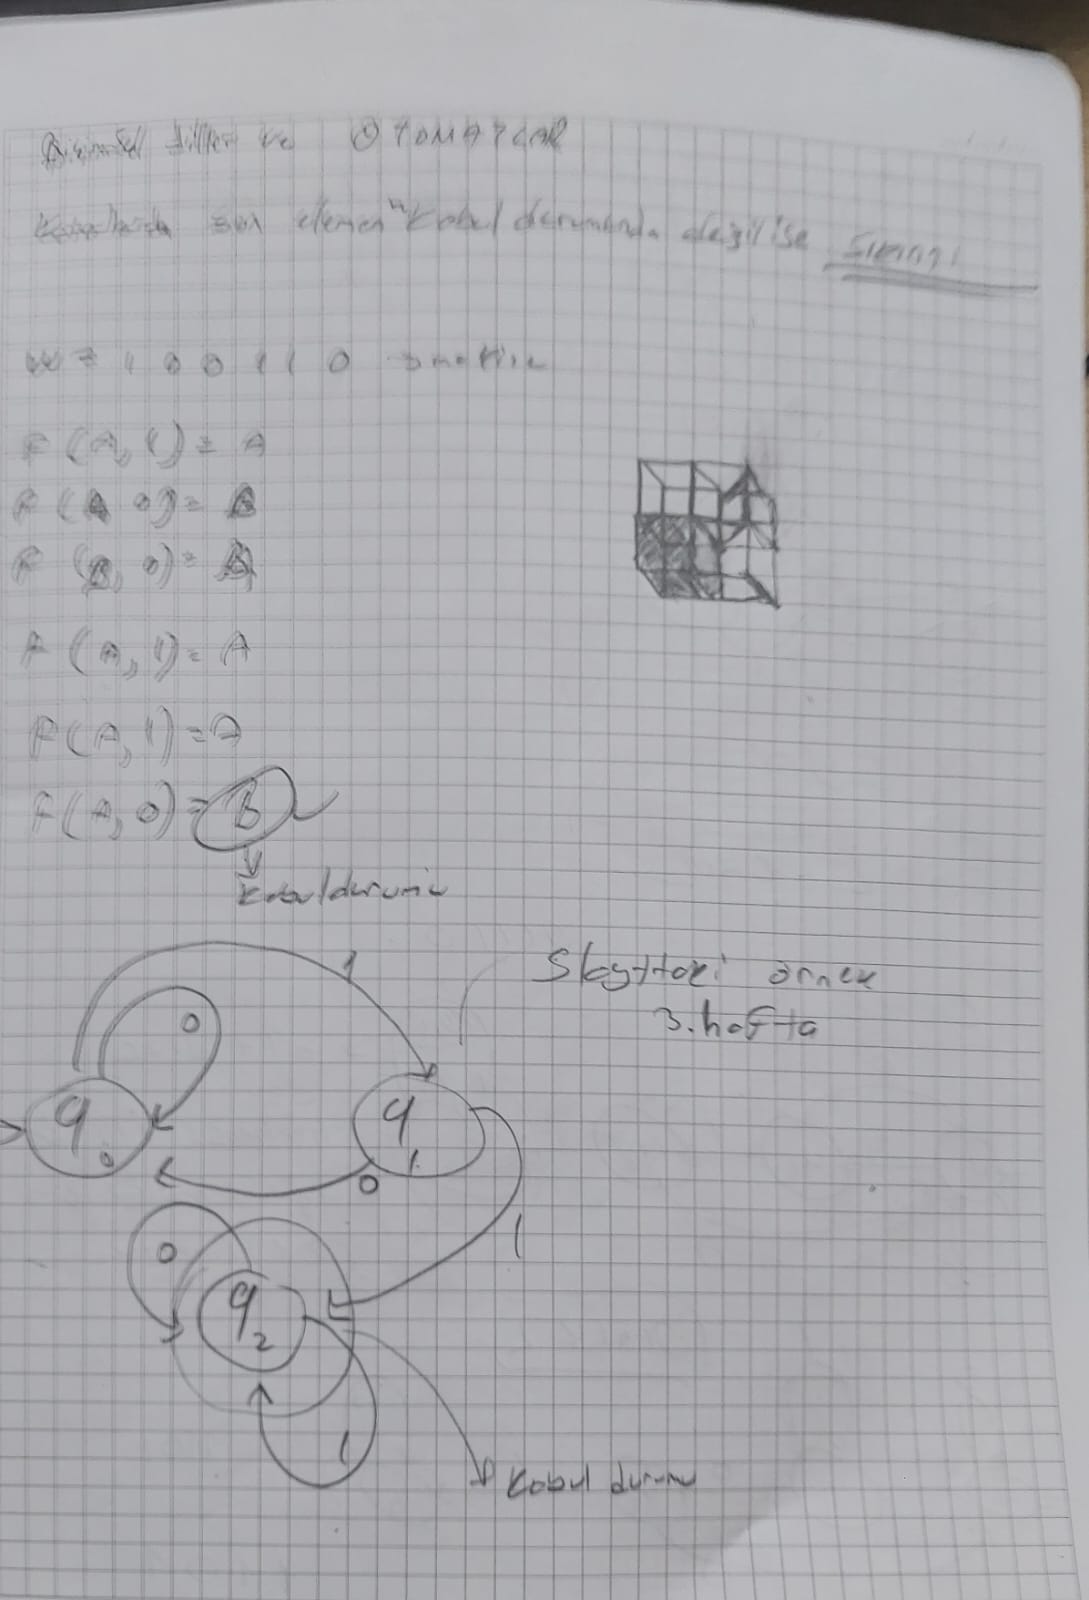 Biçimsel diller ve OTOMATLAR
son eleman "kabul durumunda değilise
w = 1 0 0 1 1 0
F (A, 1) = A
F (A 0) = B
F (B, 0) = B
F (A, 1) = A
F (A, 1) = A
F (A, 0) = B
Kabul durumu
Slayttaki örnek
3. hafta
1
0
q0
q1
0
1
0
q2
1
Kabul durumu